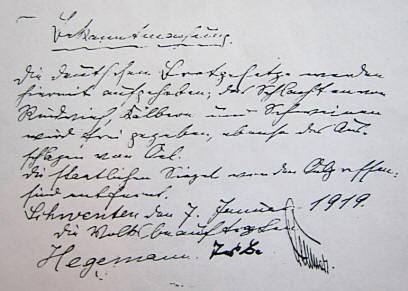 Bekanntmachung.
Die deutschen Brotgesetze werden
hiermit aufgehoben; das Schlachten von
Rindvieh, Kälbern und Schweinen
wird frei gegeben, ebenso das Aus-
schlagen von Oel.
Die staatlichen Siegel von den Oelpressen
sind entfernt.
Schwenten den 7. Januar 1919.
Die Volksbeauftragten
Hegemann.